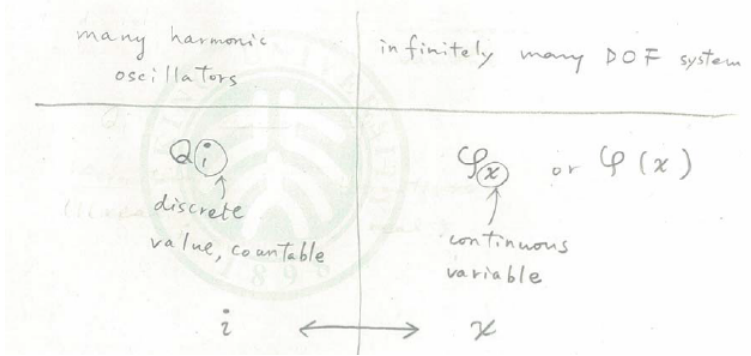 many harmonic
oscillators
infinitely many DOF system
Qi
discrete
value, countable
φx or φ(x)
continuous
variable
i ↔ x
1898